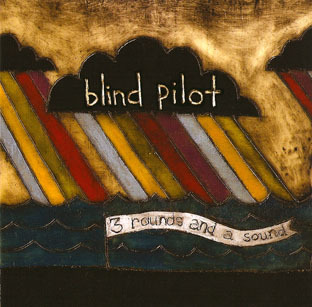 blind pilot
3 rounds and a sound